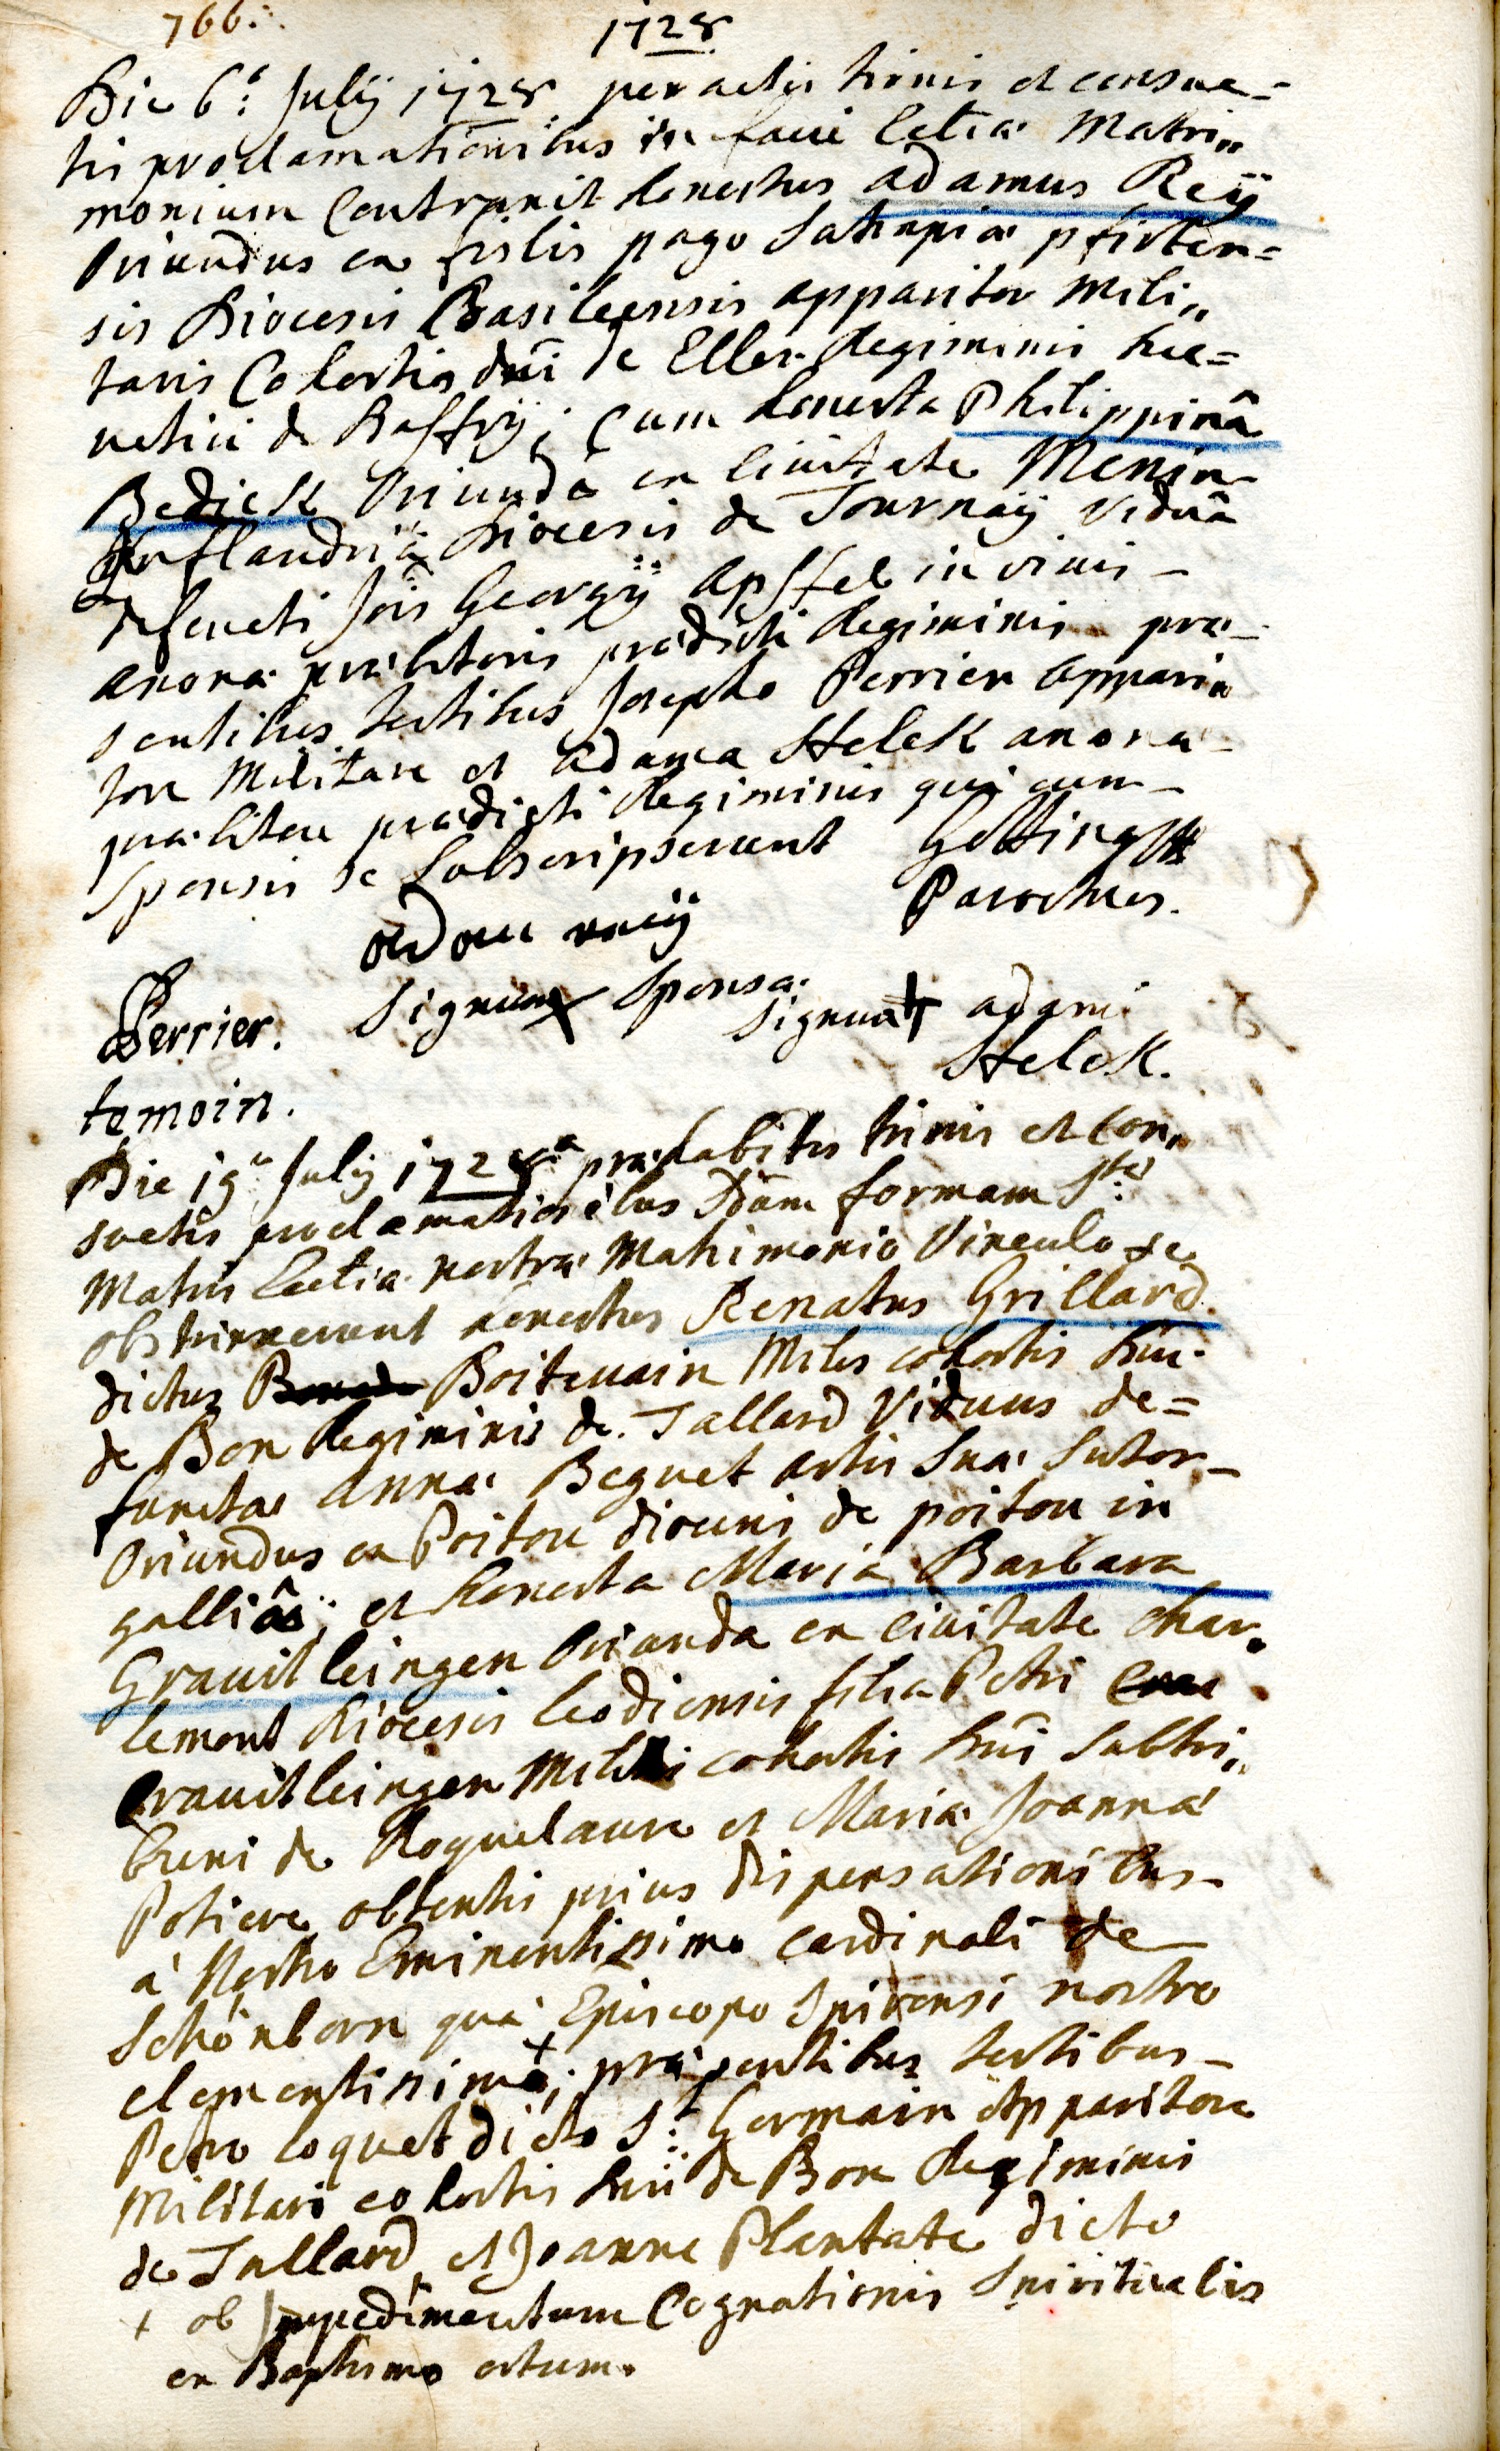 766.
1728
Die 6ª: Julÿ 1728 peractis trinis et consue=
tis proclamationibus in facie Eccliæ Matri„
monium Contraxit honestus adamus Reÿ
Oriundus ex fislis pago Satrapiæ pfirten=
sis Diocesis Basileensis apparitor Mili„
taris Cohortis dni de Eller Regiminis hel=
vetici de Bessÿ; Cum honesta Philippinâ
Bedick Oriundâ ex Civitate Menin
in flandriâ Diocesis de Tournaÿ Viduâ
defuncti Jois Georgÿ Apffel in vivis -
anonæ præbitoris prædicti Regiminis præ-
sentibus testibus Josepho Perrier appari„
tore Militare et Adamo Helck anonæ -
præbitore prædicti Regiminis qui cum -
Sponsis se Subscripserunt Gotting
Parochus.
adam reeÿ
Signum x Sponsæ.
Signum + adami
Helck.
Perrier.
temoin.
Die 19ª July 1728ª præhabitis trinis et Con„
suetis proclamationibus Sdum formam Stæ:
Matris Eccliæ nostræ Matrimonio Vinculo se
obstrinxerunt honestus Renatus Grillard
dictus Boitevain Miles cohortis Dni
de Bon Regiminis de Tallard Viduus de=
functæ Annæ Beguet artis Suæ Sutor -
Oriundus ex Poitou diocesis de poitou in
galliâ; et honesta Maria Barbara
Gravitleingen Orianda ex civitate char„
lemont Diocesis leodiensis filia Petri
Gravitleingen Militi cohortis Dni Subtri„
buni de Roquelaure et Mariæ Joannæ
Potiere obtentis prius dispensationibus -
à Nostro Eminentissimo cardinali de
Schönborn quà Episcopo Spirensi nostro
clementissimo +; præsentibus testibus -
Petro Coquet dicto St: Germain Apparitore
Militari cohortis Dni de Bon Regiminis
de Tallard, et Joanne Plantate dicto
+ ob Impedimentum Cognationis Spiritualis
ex Baptismo ortum.